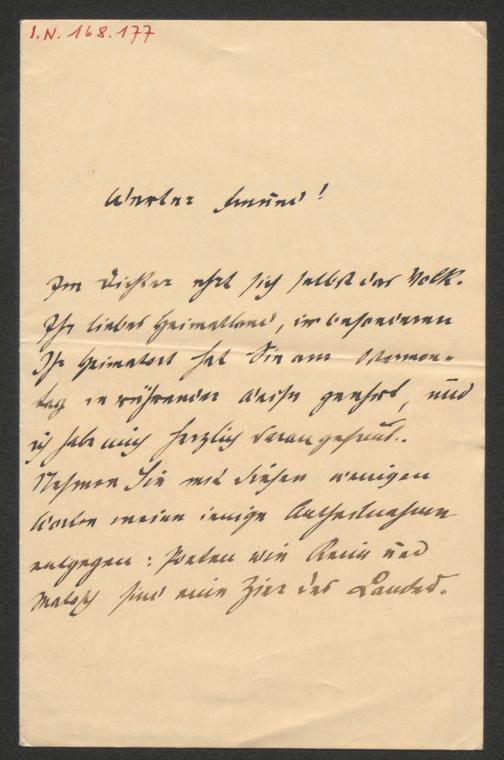 I.N. 168.177
Werter Freund!
Im Dichter ehrt sich selbst das Volk.
Ihr liebes Heimatland, im besonderen
Ihr Heimatort hat Sie am Ostermon-
tag in rührender Weise geehrt, und
ich habe mich herzlich daran gefreut.
Nehmen Sie mit diesen wenigen
Worten meine innige Antheilnahme
entgegen: Poeten wie und
sind eine Zier des Landes.